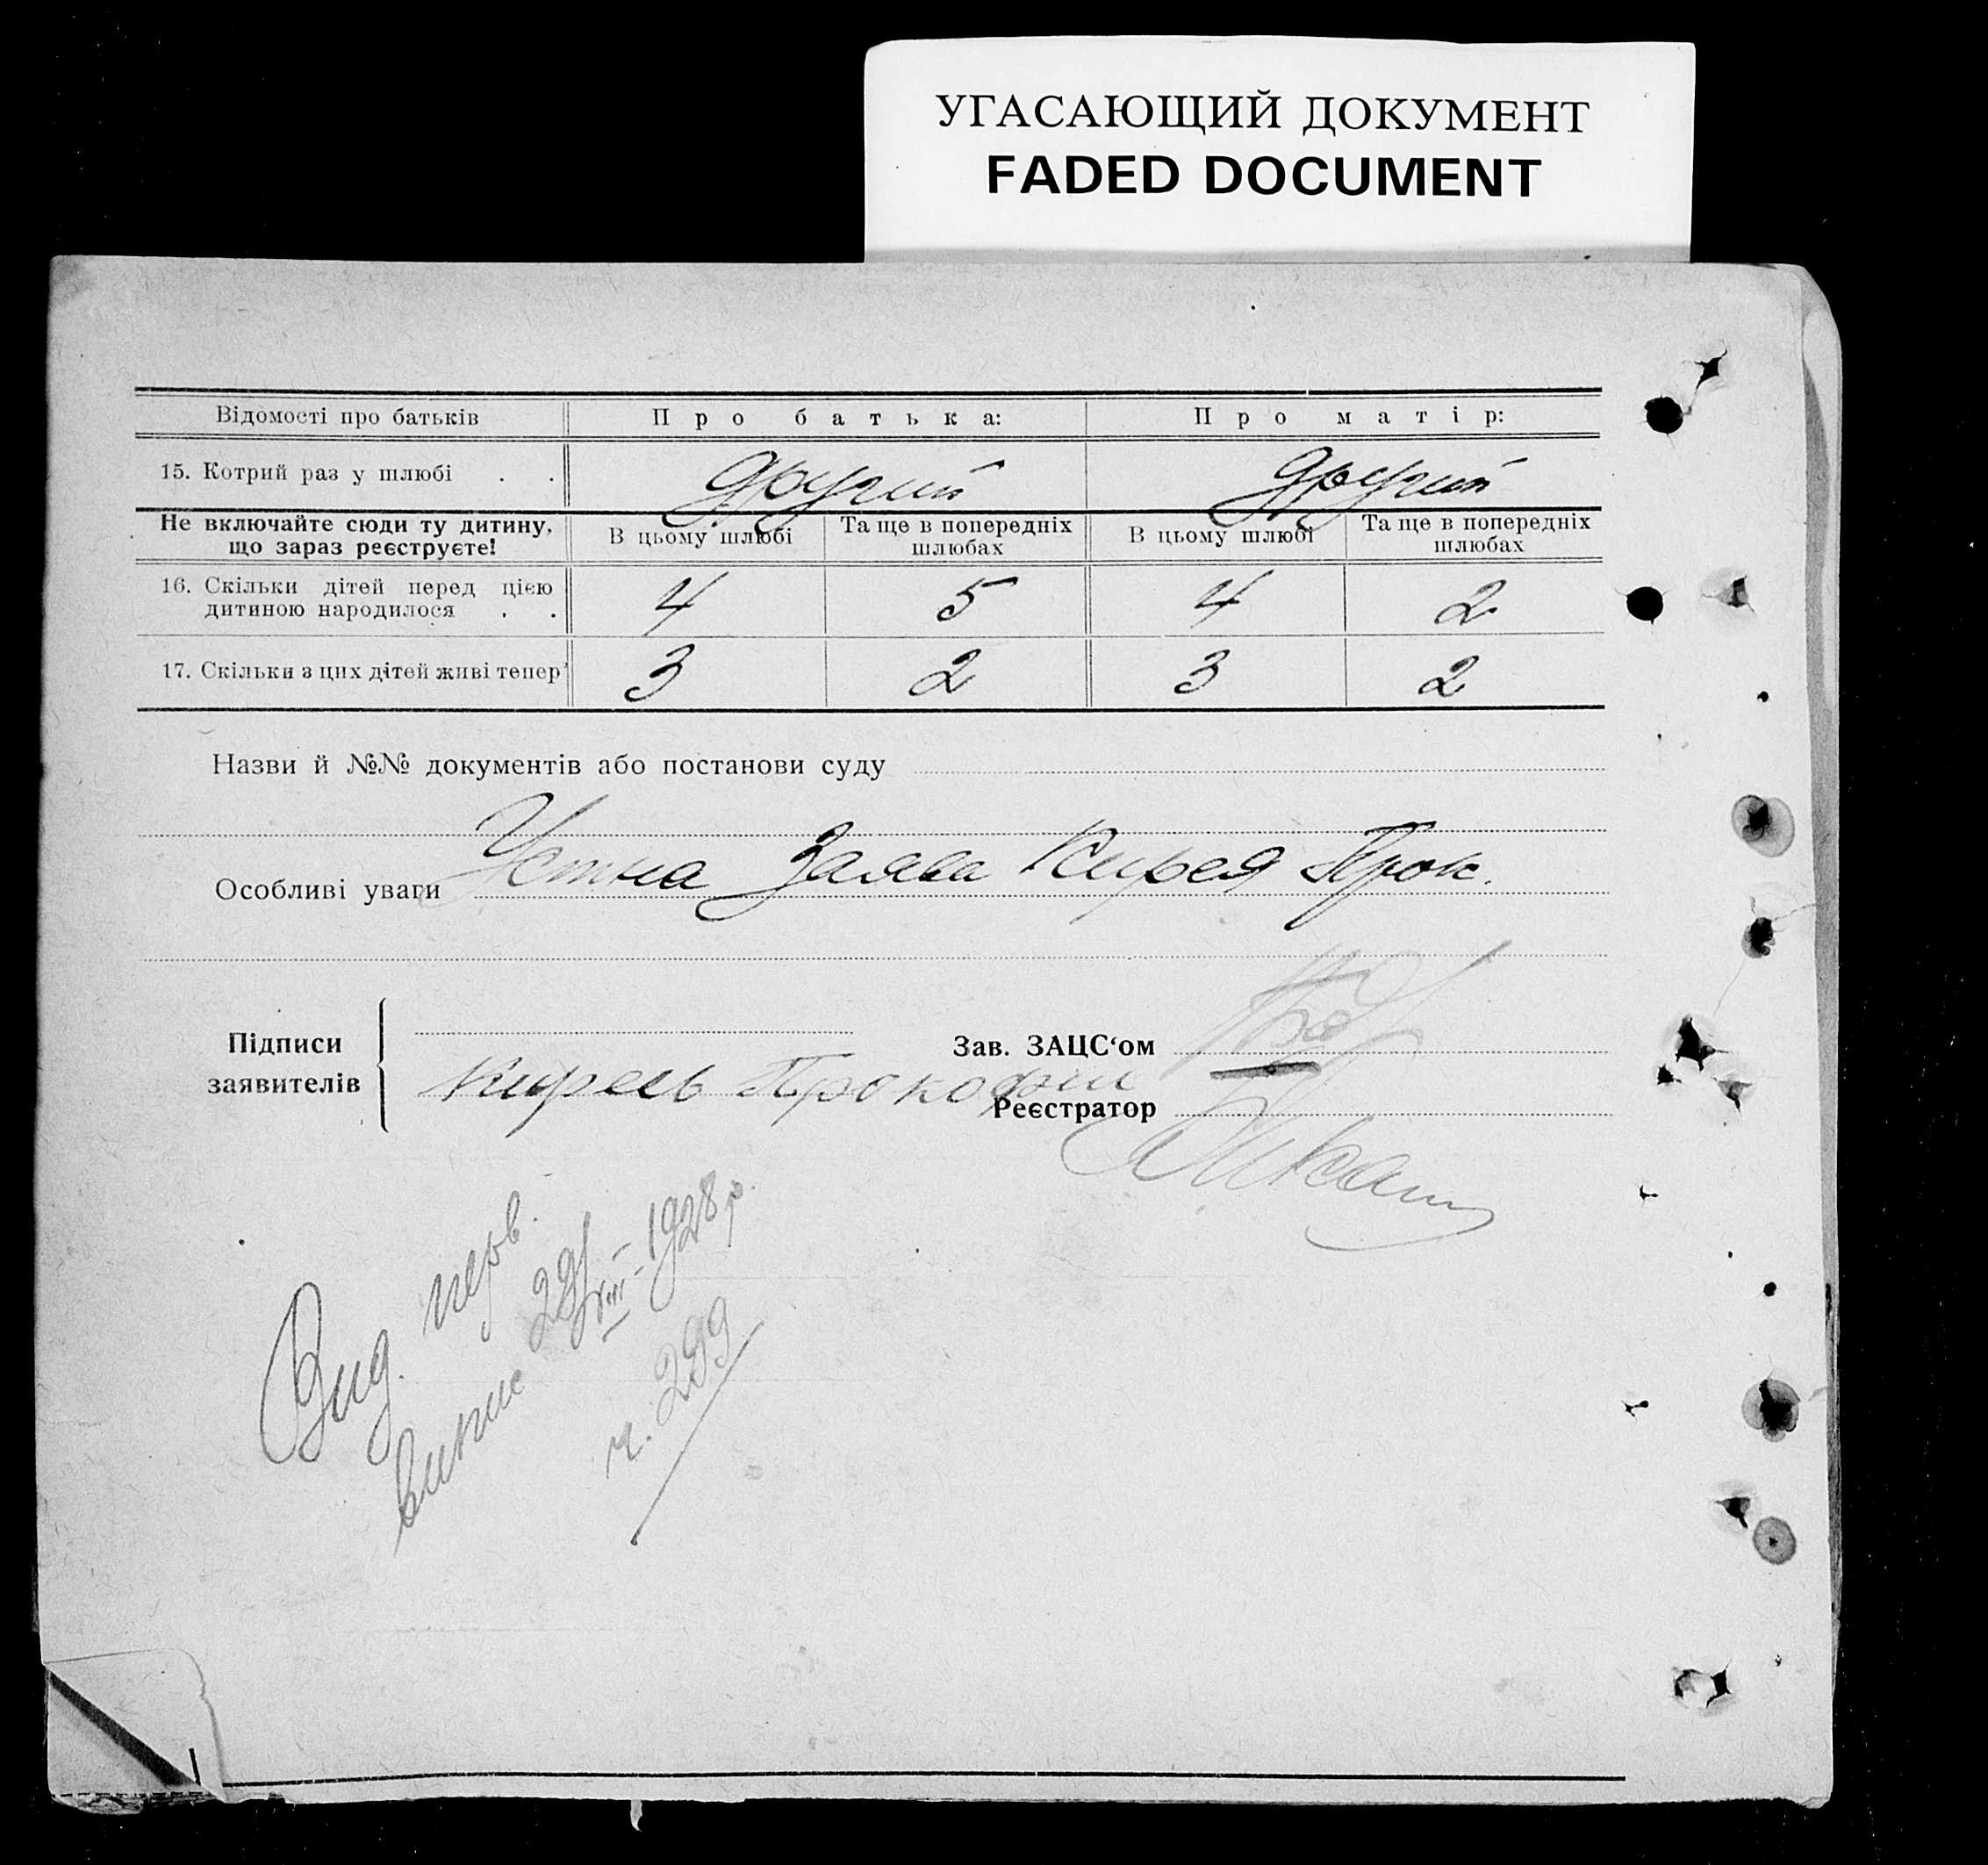 УГАСАЮЩИЙ ДОКУМЕНТ
FADED DOCUMENT
Відомості про батьків
Про батька:
Про матір:
15. Котрий раз у шлюбі . .
другий
другий
Не включайте сюди ту дитину,
що зараз реєструєте!
В цьому шлюбі
Та ще в попередніх
шлюбах
В цьому шлюбі
Та ще в попередніх
шлюбах
16. Скільки дітей перед цією
дитиною народилося . .
4
5
4
2
17. Скільки з цих дітей живі тепер
3
2
3
2
Назви й №№ документів або постанови суду
Особливі уваги Устна Заява Кирея Прок.
Підписи
заявителів
Кирей Прокофи
Зав. ЗАЦС‘ом
Реєстратор
Вид. перв.
випис 29/VIII-1928 р.
ч. 299